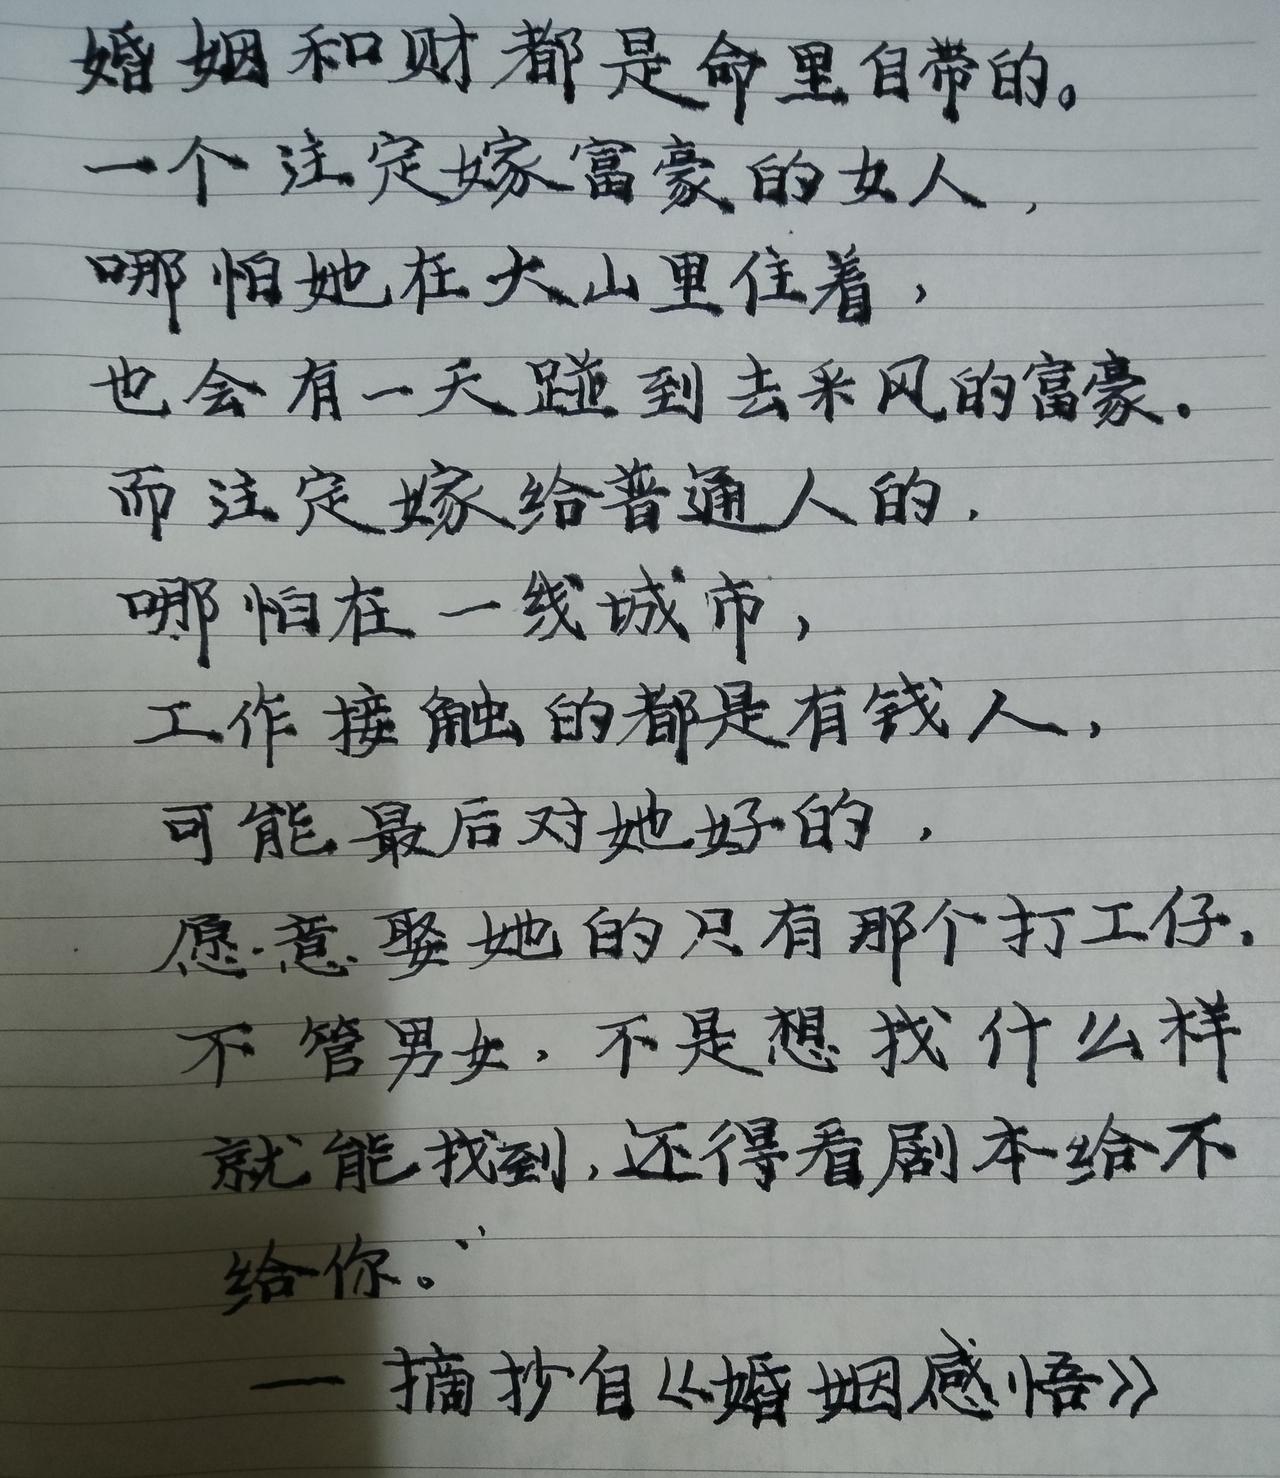 婚姻和财都是命里自带的。
一个注定嫁富豪的女人,
哪怕她在大山里住着,
也会有一天踫到去采风的富豪.
而注定嫁给普通人的.
哪怕在一线城市,
工作接触的都是有钱人,
可能最后对她好的,
愿意娶她的只有那个打工仔.
不管男女,不是想找什么样
就能找到,还得看剧本给不
给你。”
—摘抄自《婚姻感悟》